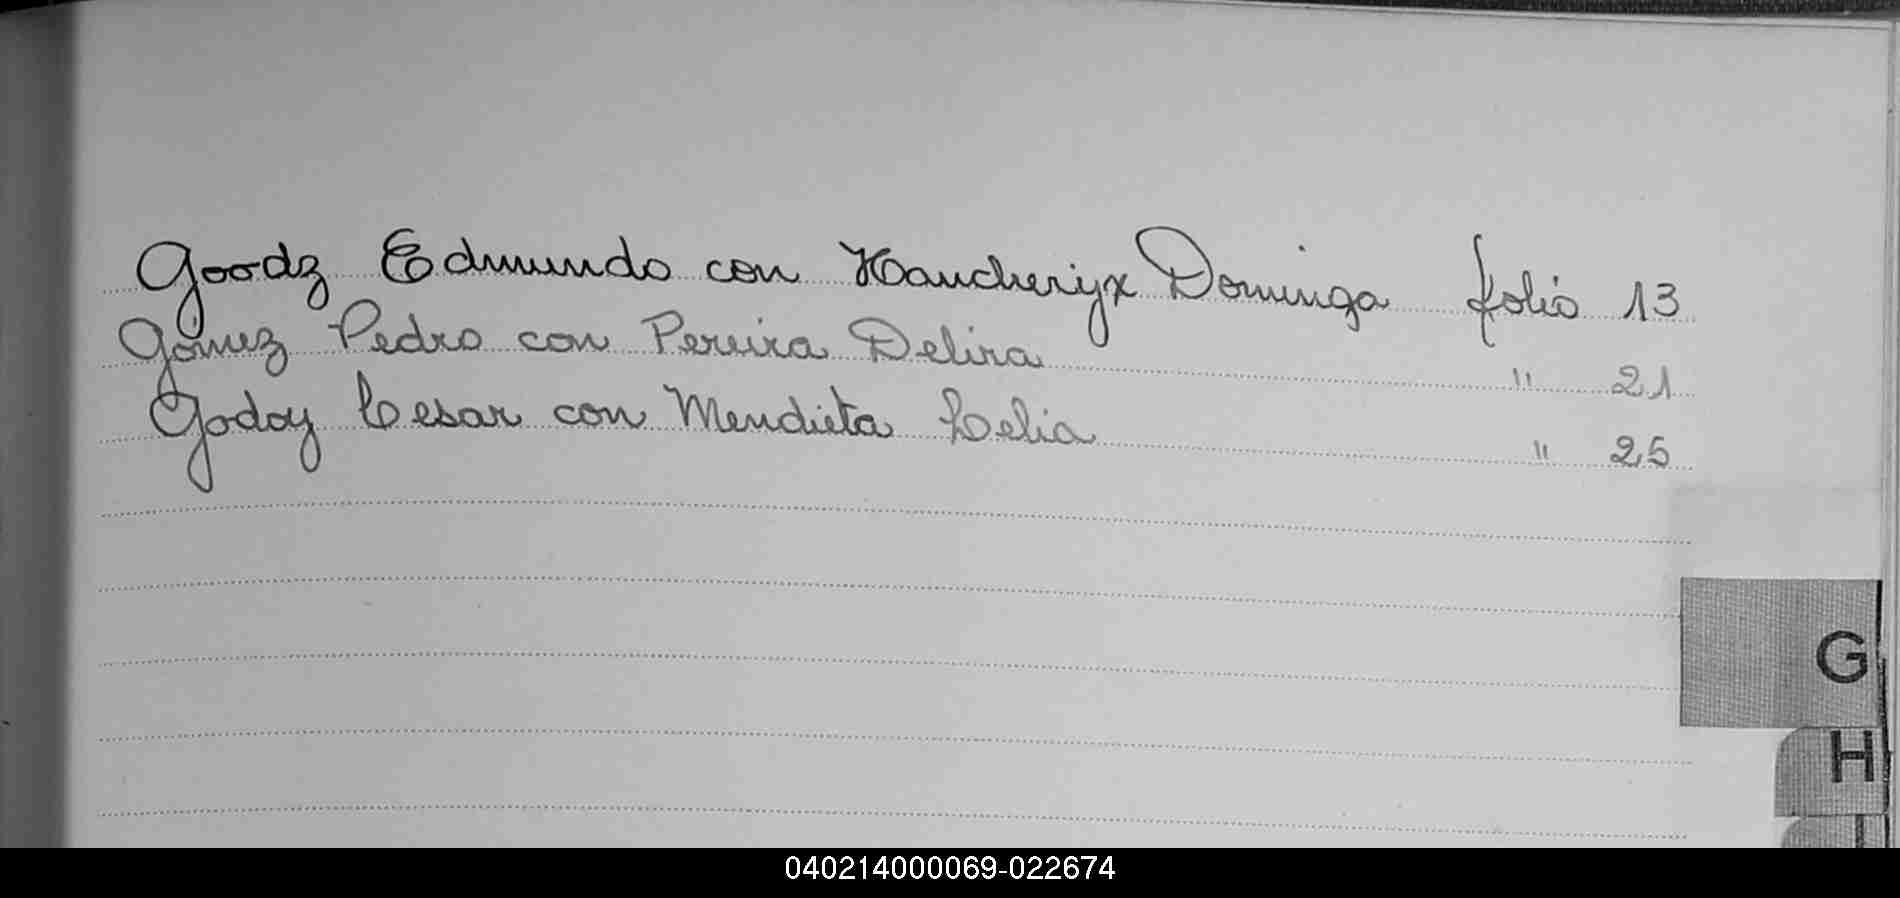 Goodz Edmundo con Haucheryx Dominga folio 13
Gómez Pedro con Pereira Delira " 21
Godoy Cesar con Mendieta Celia " 25
G
H
I
040214000069-022674